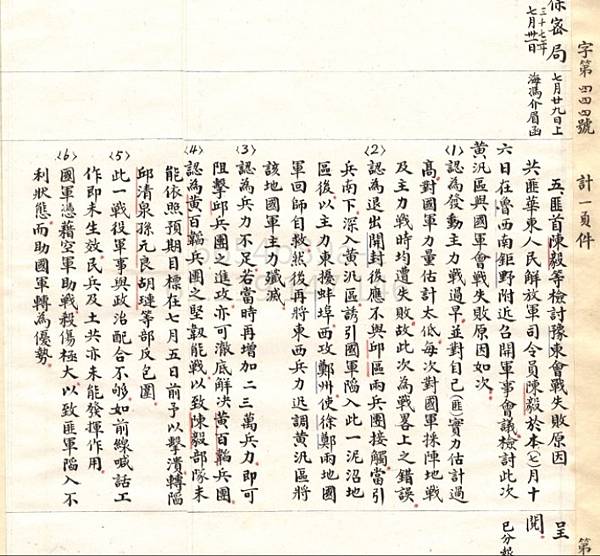 字第四四四號 計一頁件 第
保密局 三十七年七月卅一日
七月廿九日上海馮介眉函 呈閱 已分報
五、匪首陳毅等檢討豫東會戰失敗原因
共匪華東人民解放軍司令員陳毅於本(七)月十
六日在魯西南鉅野附近召開軍事會議檢討此次
黃汎區與國軍會戰失敗原因如次。
(1)認為發動主力戰過早並對自己(匪)實力估計過
高對國軍力量估計太低每次對國軍採陣地戰
及主力戰時均遭失敗故此次為戰畧上之錯誤
(2)認為退出開封後應不與邱區兩兵團接觸當引
兵南下深入黃汎區誘引國軍陷入此一泥沼地
區後以主力東擾蚌埠西攻鄭州使徐鄭兩地國
軍回師自救然後再將東西兵力迅調黃汎區將
該地國軍主力殲滅
(3)認為兵力不足若當時再增加二三萬兵力即可
阻擊邱兵團之進攻亦可澈底解決黃百韜兵團
(4)認為黃百韜兵團之堅韌能戰以致陳毅部隊未
能依照預期目標在七月五日前予以擊潰轉陷
邱清泉孫元良胡璉等部反包圍
(5)此一戰役軍事與政治配合不够如前線喊話工
作即未生效民兵及土共亦未能發揮作用
(6)國軍憑藉空軍助戰殺傷極大以致匪軍陷入不
利狀態而助國軍轉為優勢